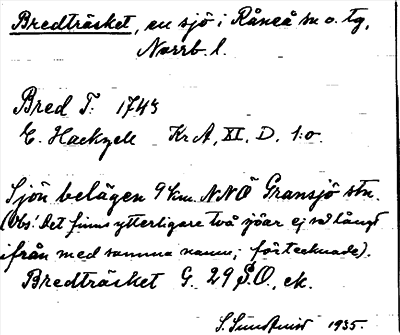 Bredträsket, en sjö i Råneå sn o. tg,
Norrb. l.
Bred T. 1743
E. Hackzell KrA, XI. D. 1:o
Sjön belägen 9 km. NNÖ Gransjö stn.
(Obs! Det finns ytterligare två sjöar ej så långt
ifrån med samma namn; förtecknade).
Bredträsket G. 29 S.O., ek.
S. Sundqvist 1935.